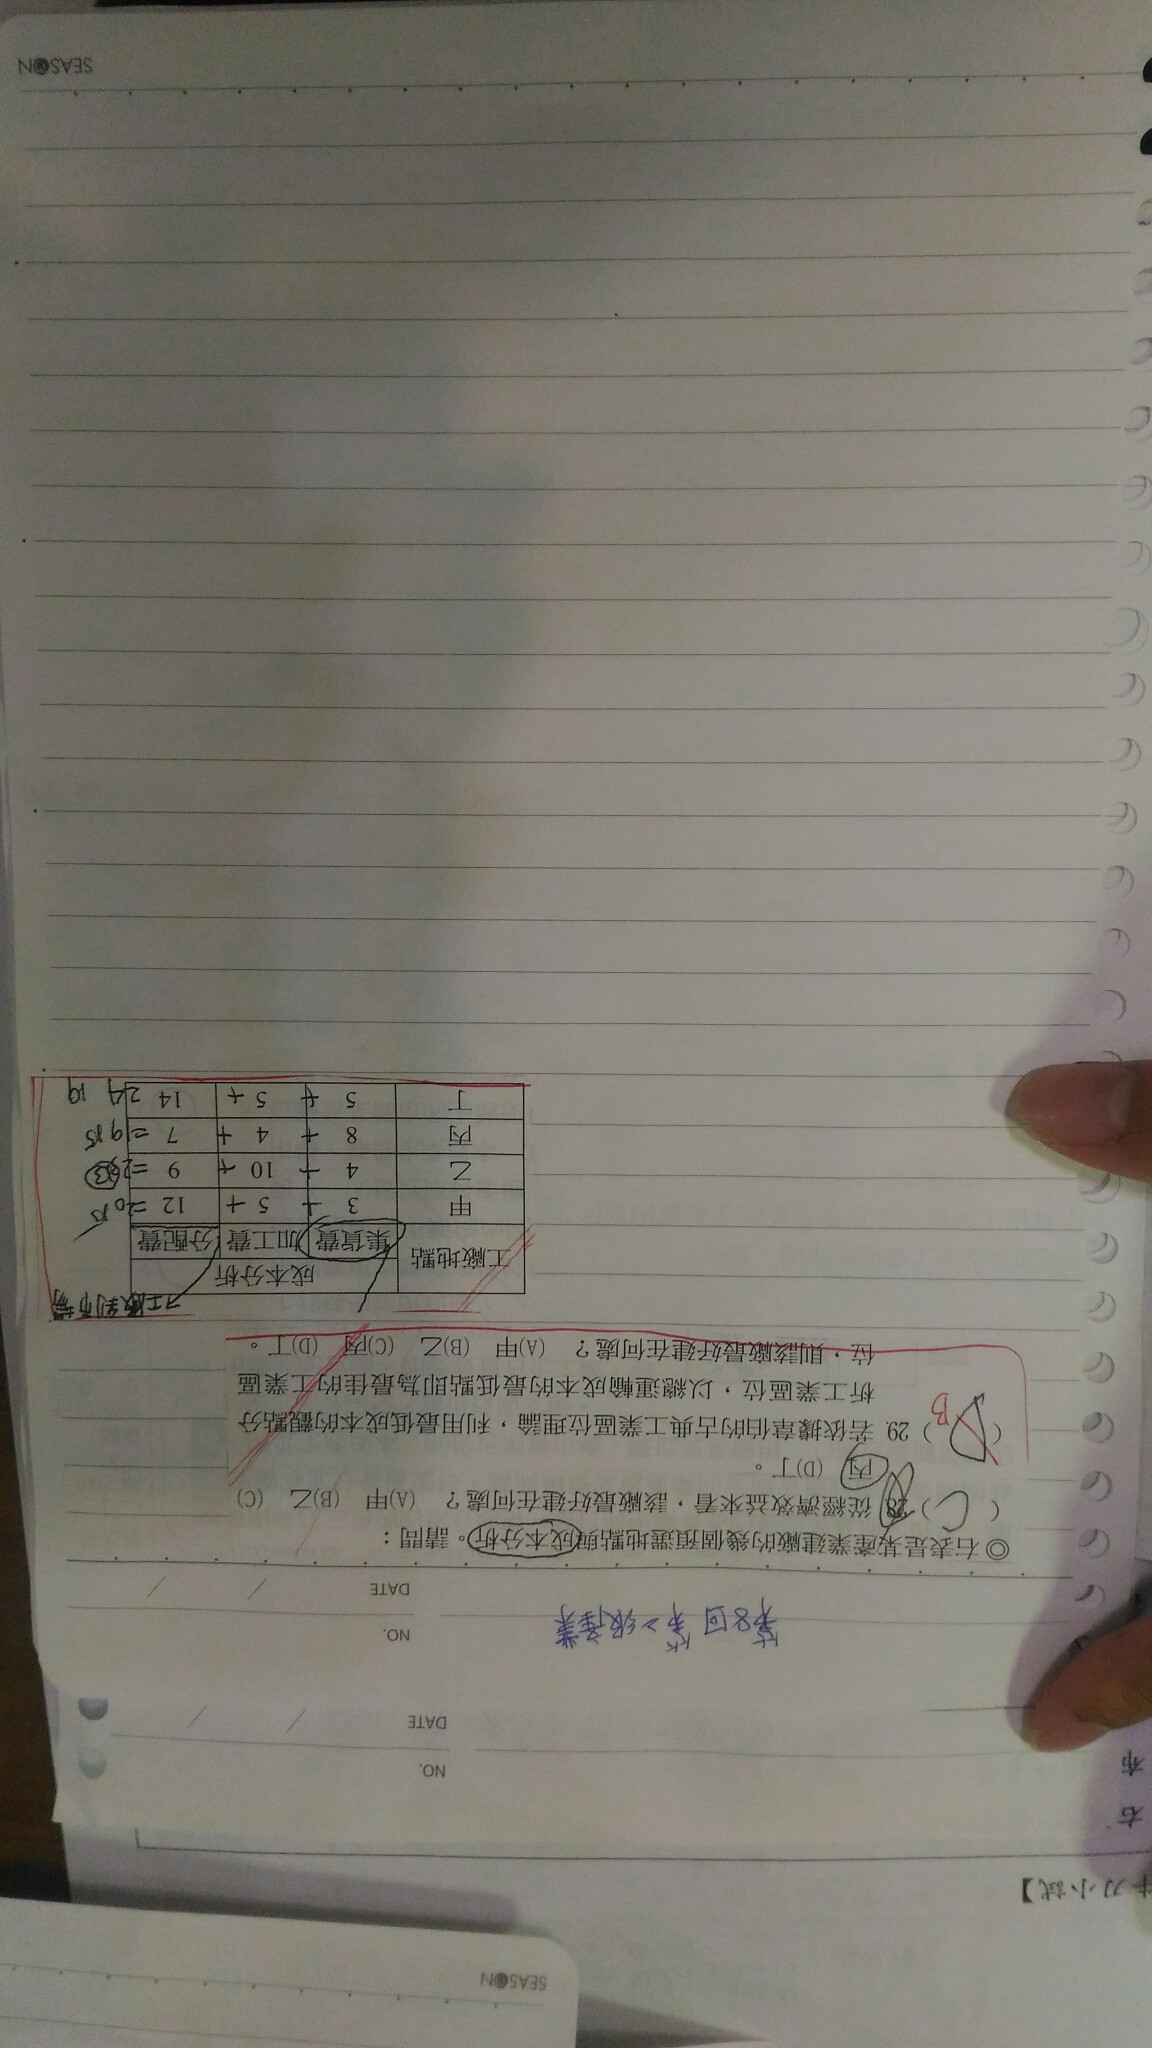 SEASON
牛刀小試】
右
布
NO.
DATE
NO.
DATE
第8回 第二級產業
◎右表是某產業建廠的幾個預選地點與成本分析。請問：
( C ) 28. 從經濟效益來看，該廠最好建在何處？ (A)甲 (B)乙 (C)
丙 (D)丁。
( D B ) 29. 若依據韋伯的古典工業區位理論，利用最低成本的觀點分
析工業區位，以總運輸成本的最低點即為最佳的工業區
位，則該廠最好建在何處？ (A)甲 (B)乙 (C)丙 (D)丁。
工廠到市場
工廠地點 成本分析
集貨費 加工費 分配費
甲 3 + 5 + 12 =20 15
乙 4 + 10 + 9 =23 13
丙 8 + 4 + 7 =19 15
丁 5 + 5 + 14 24 19
SEASON